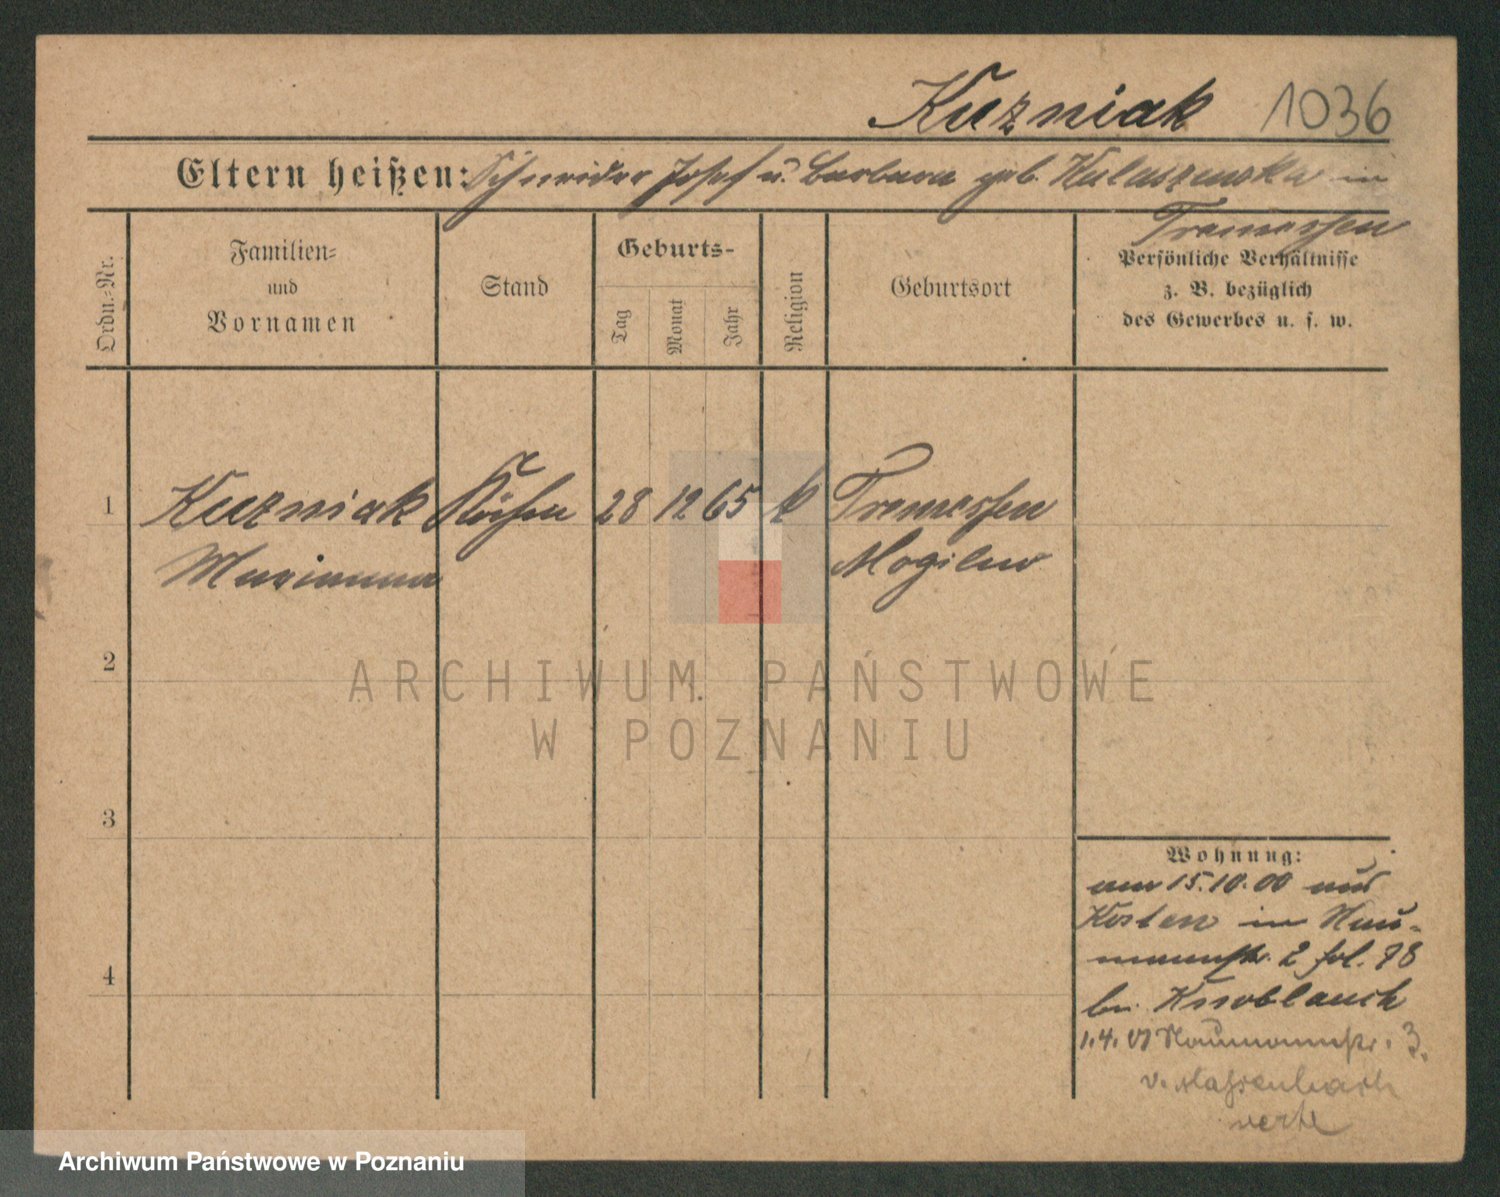 Kuzniak 1036
Eltern heißen: Schneider Josef u. Barbara geb. Kulaszewska in
Tremessen
Ordn.-Nr.
Familien-
und
Vornamen
Stand
Geburts-
Tag
Monat
Jahr
Religion
Geburtsort
Persönliche Verhältnisse
z. B. bezüglich
des Gewerbes u. s. w.
1 Kuzniak Köchin 28 12 65 k Tremessen
Marianna Mogilno
2
3
4
ARCHIWUM PAŃSTWOWE
W POZNANIU
Wohnung:
am 15.10.00 aus
Kosten in Nau-
mannstr. 2 fol. 78
bei Knoblauch
1.4.01 Naumannstr. 3.
v. Massenbach
verte
Archiwum Państwowe w Poznaniu